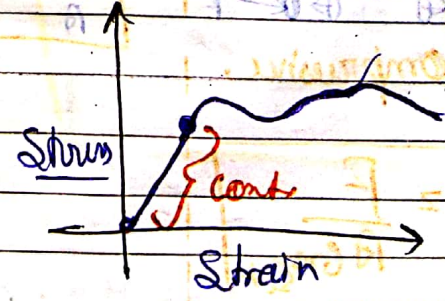 Stress
const
Strain